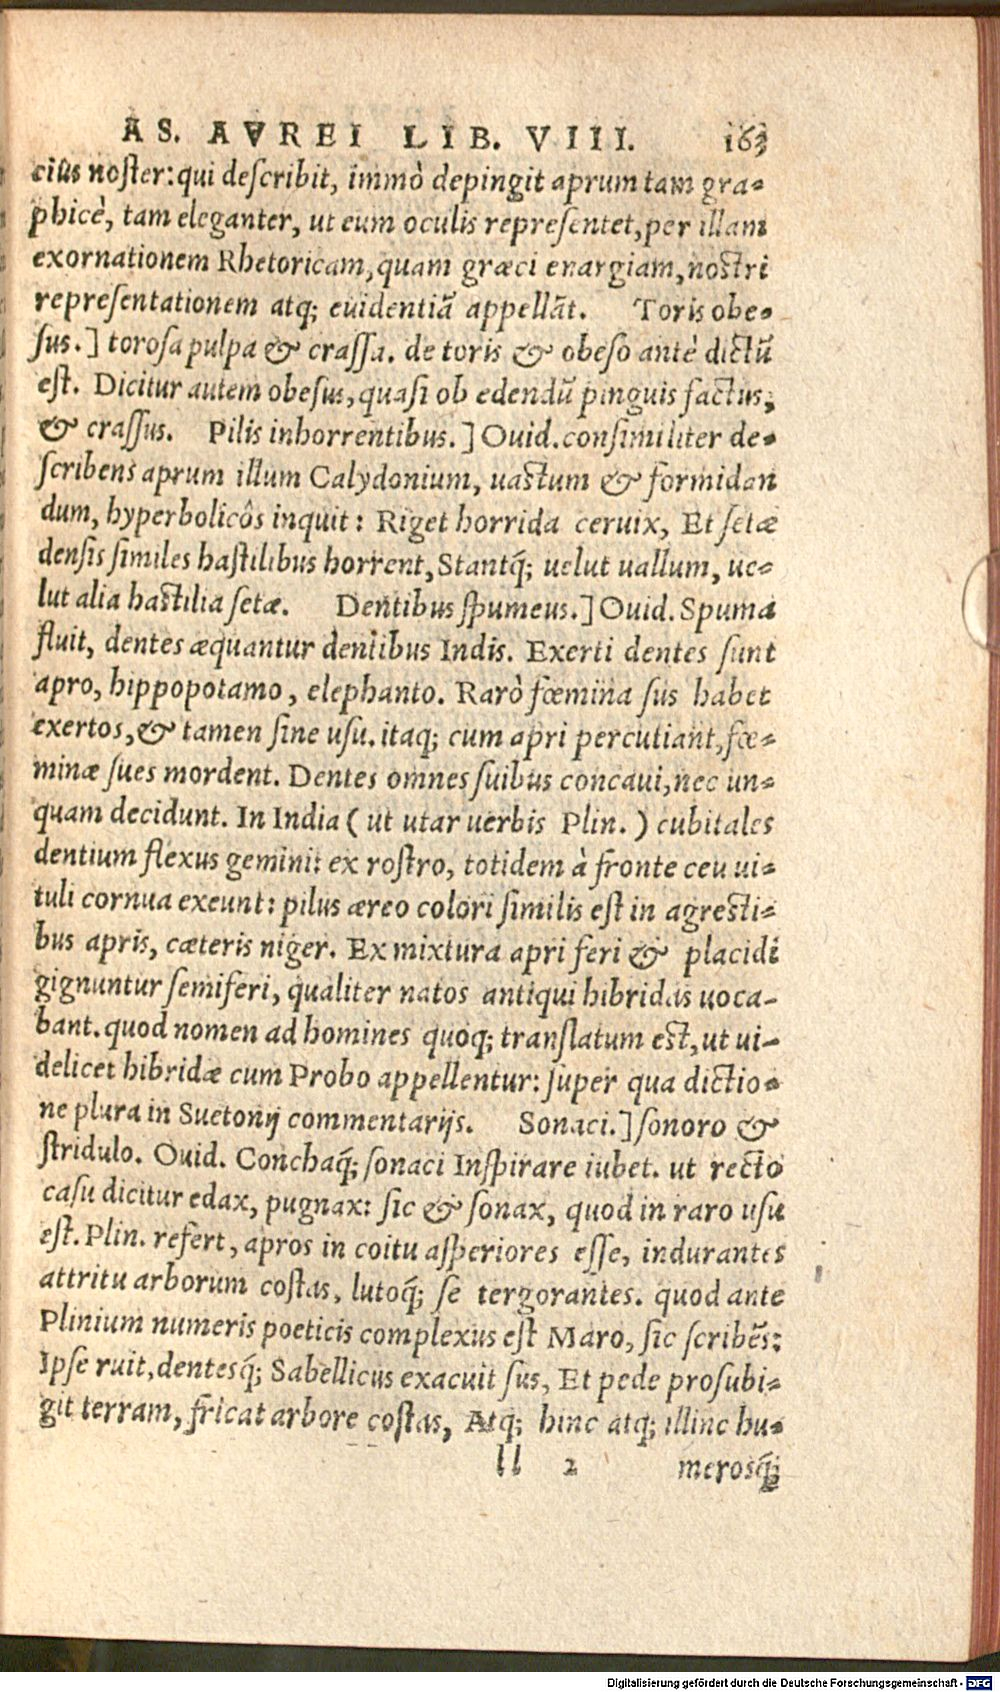 AS. AVREI LIB. VIII. 163
cius noster: qui describit, immò depingit aprum tam gra-
phicè, tam eleganter, ut eum oculis repræsentet, per illam
exornationem Rhetoricam, quam græci enargiam, nostri
repræsentationem atq; euidentiã appellãt. Toris obe-
sus.] torosa pulpa & crassa. de toris & obeso antè dictũ
est. Dicitur autem obesus, quasi ob edendũ pinguis factus,
& crassus. Pilis inhorrentibus.] Ouid. consimiliter de-
scribens aprum illum Calydonium, uastum & formidan
dum, hyperbolicôs inquit: Riget horrida ceruix, Et setæ
densis similes hastilibus horrent, Stantq́; uelut uallum, ue-
lut alia hastilia setæ. Dentibus spumeus.] Ouid. Spuma
fluit, dentes æquantur dentibus Indis. Exerti dentes sunt
apro, hippopotamo, elephanto. Rarò fœmina sus habet
exertos, & tamen sine usu. itaq; cum apri percutiant, fœ-
minæ sues mordent. Dentes omnes suibus concaui, nec un-
quam decidunt. In India ( ut utar uerbis Plin. ) cubitales
dentium flexus gemini: ex rostro, totidem à fronte ceu ui-
tuli cornua exeunt: pilus æreo colori similis est in agresti-
bus apris, cæteris niger. Ex mixtura apri feri & placidi
gignuntur semiferi, qualiter natos antiqui hibridas uoca-
bant. quod nomen ad homines quoq; translatum est, ut ui-
delicet hibridæ cum Probo appellentur: super qua dictio-
ne plura in Suetonij commentarijs. Sonaci.] sonoro &
stridulo. Ouid. Conchaq́; sonaci Inspirare iubet. ut recto
casu dicitur edax, pugnax: sic & sonax, quod in raro usu
est. Plin. refert, apros in coitu asperiores esse, indurantes
attritu arborum costas, lutoq́; se tergorantes. quod ante
Plinium numeris poeticis complexus est Maro, sic scribẽs:
Ipse ruit, dentesq́; Sabellicus exacuit sus, Et pede prosubi-
git terram, fricat arbore costas, Atq; hinc atq; illinc hu-
ll 2 merosq́;
Digitalisierung gefördert durch die Deutsche Forschungsgemeinschaft - DFG